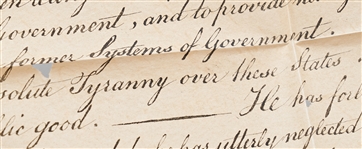 Government, and to provide new
former Systems of Government.
solute Tyranny over these States
lic good. — He has for
has utterly neglected